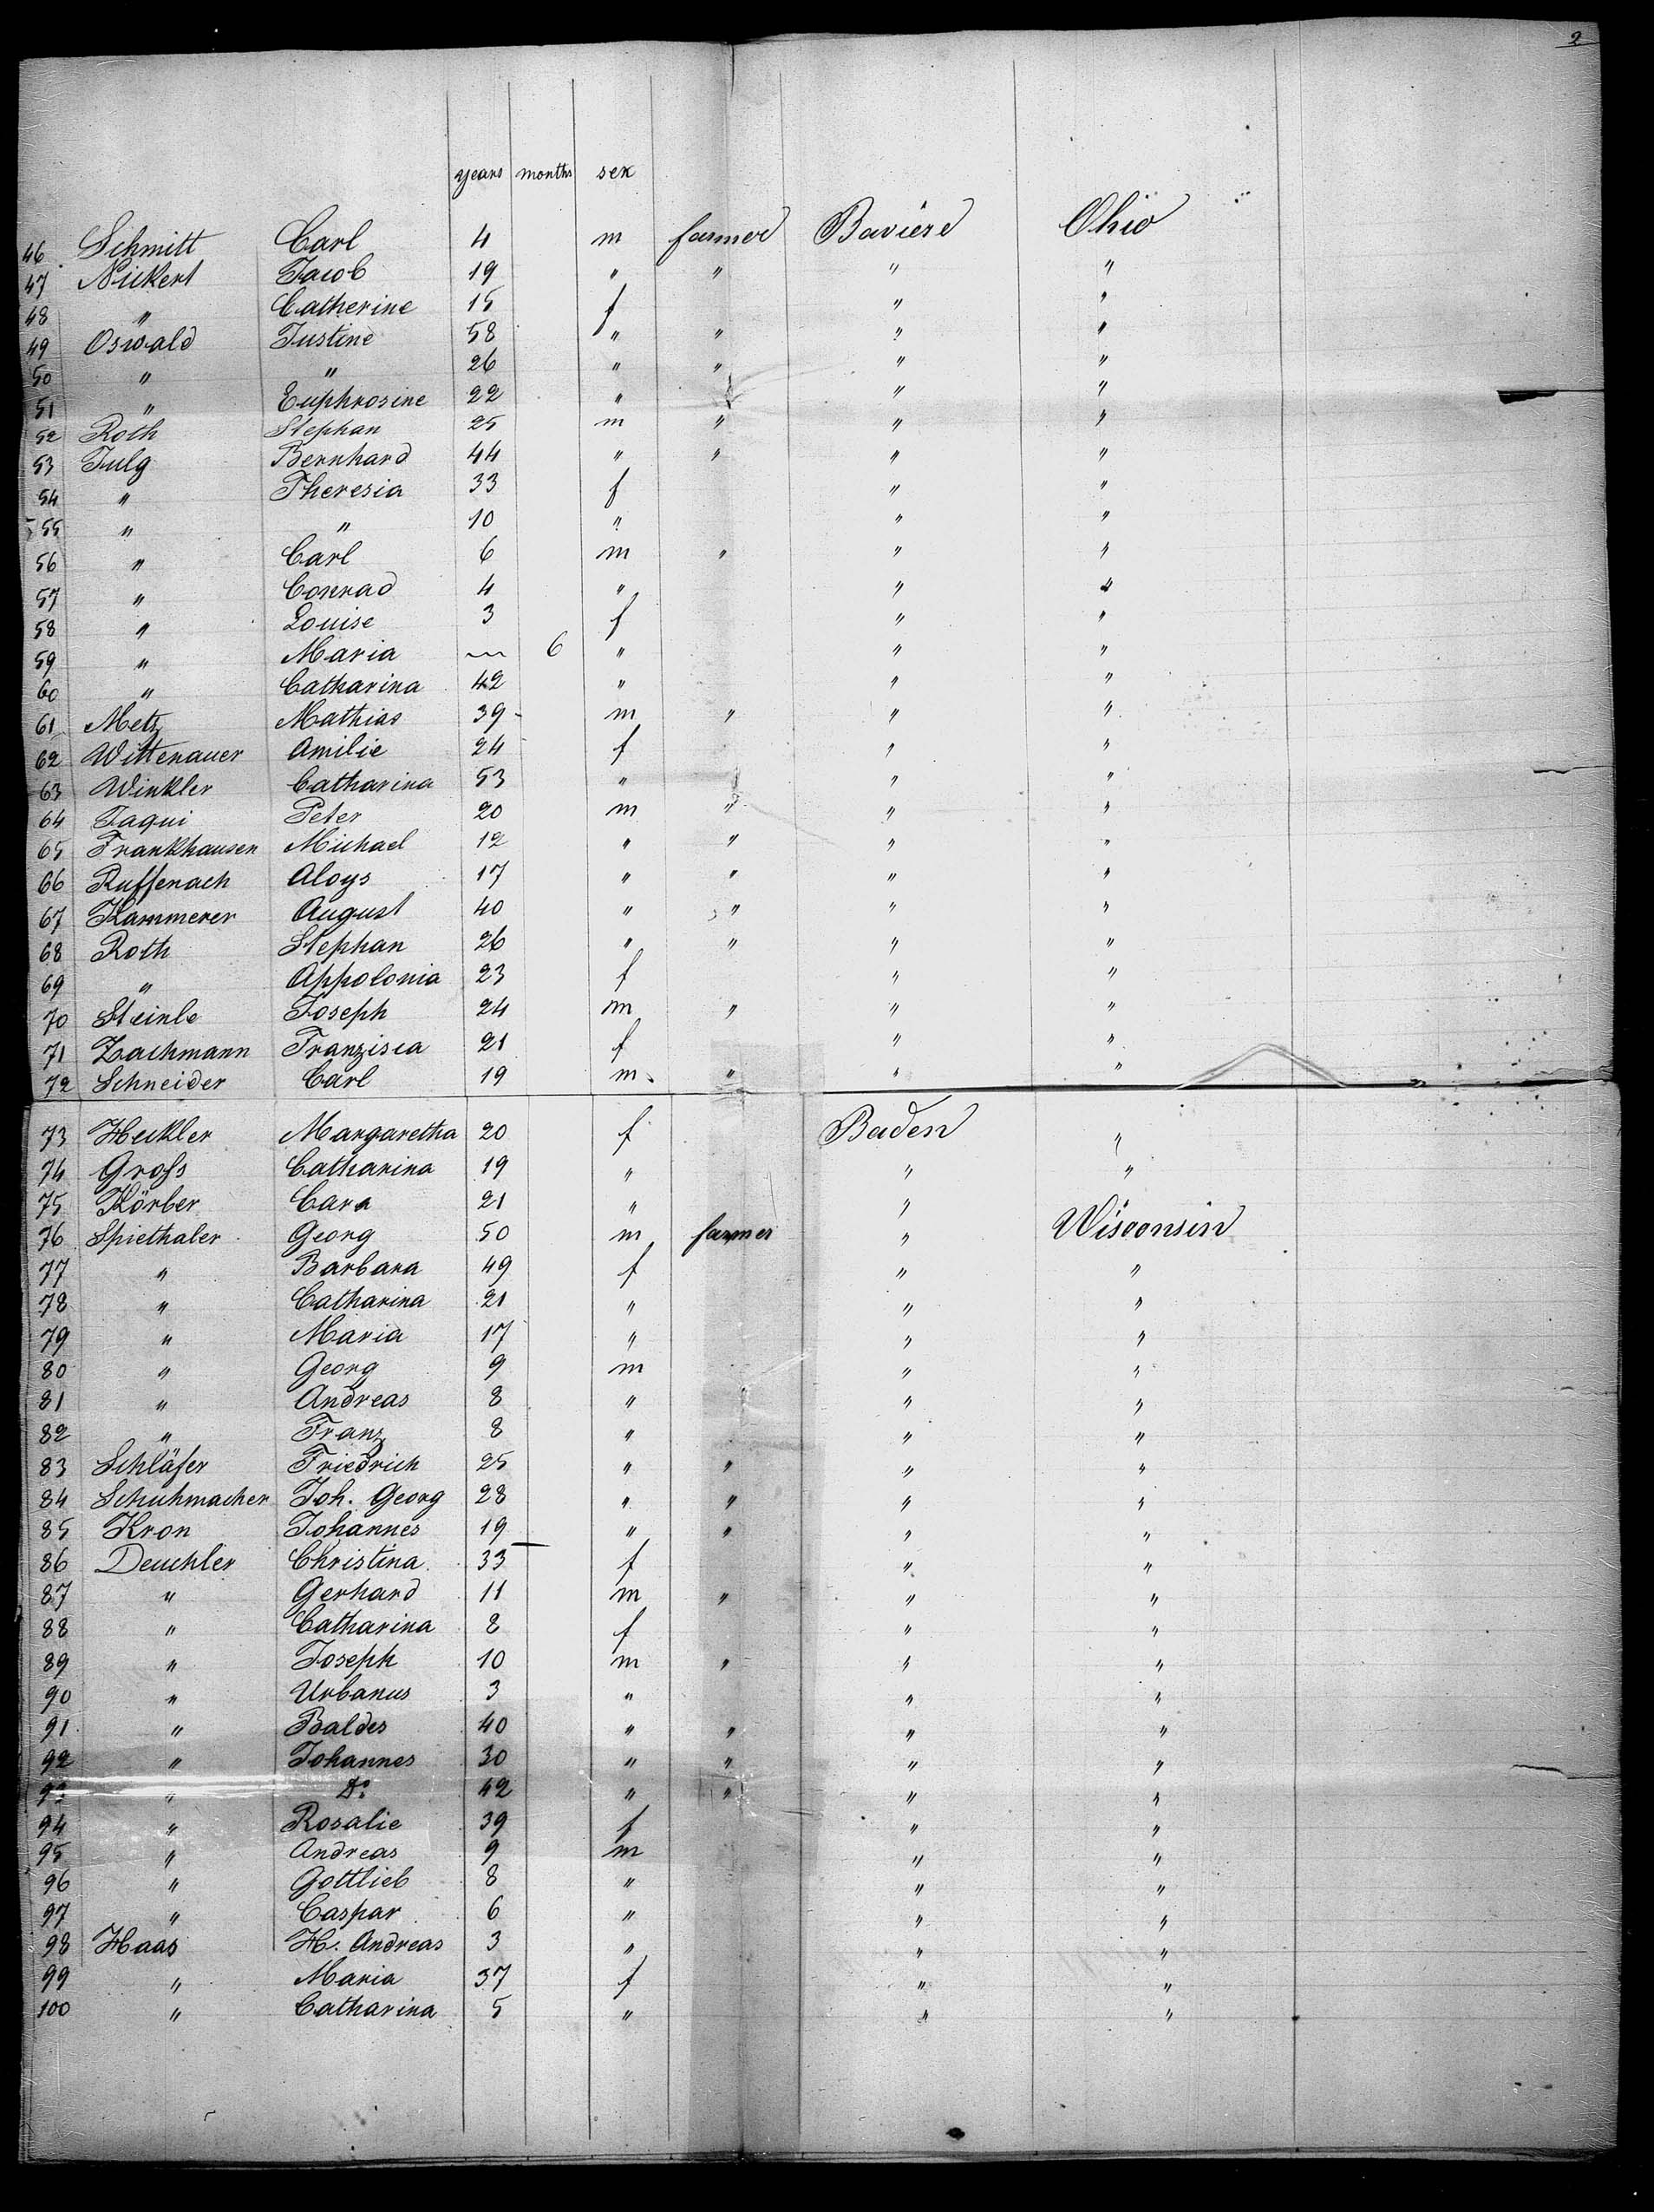 2
years months sex
46 Schmitt Carl 4 m farmer Baviere Ohio
47 Nickert Jacob 19 " " " "
48 " Catherine 15 f " "
49 Oswald Justine 58 " " " "
50 " " 26 " " " "
51 " Euphrosine 22 " " "
52 Roth Stephan 25 m " " "
53 Julg Bernhard 44 " " " "
54 " Theresia 33 f " "
55 " " 10 " " "
56 " Carl 6 m " " "
57 " Conrad 4 " " "
58 " Louise 3 f " "
59 " Maria — 6 " " "
60 " Catharina 42 " " "
61 Metz Mathias 39 m " " "
62 Wittenauer Amilie 24 f " "
63 Winkler Catharina 53 " " "
64 Jaqui Peter 20 m " " "
65 Frankhausen Michael 12 " " " "
66 Ruffenach Aloys 17 " " " "
67 Kammerer August 40 " " " "
68 Roth Stephan 26 " " " "
69 " Appolonia 23 f " "
70 Steinle Joseph 24 m " " "
71 Zachmann Franzisca 21 f " "
72 Schneider Carl 19 m " " "
73 Heckler Margaretha 20 f Baden "
74 Groß Catharina 19 " " "
75 Körber Cara 21 " "
76 Spiethaler Georg 50 m farmer " Wisconsin
77 " Barbara 49 f " "
78 " Catharina 21 " " "
79 " Maria 17 " " "
80 " Georg 9 m " "
81 " Andreas 8 " " "
82 " Franz 8 " " "
83 Schläfer Friedrich 25 " " " "
84 Schuhmacher Joh. Georg 28 " " " "
85 Kron Johannes 19 " " " "
86 Deuchler Christina 33 f " "
87 " Gerhard 11 m " " "
88 " Catharina 8 f " "
89 " Joseph 10 m " " "
90 " Urbanus 3 " " "
91 " Baldes 40 " " " "
92 " Johannes 30 " " " "
93 " Do 42 " " " "
94 " Rosalie 39 f " "
95 " Andreas 9 m " "
96 " Gottlieb 8 " " "
97 " Caspar 6 " " "
98 Haas H. Andreas 3 " " "
99 " Maria 37 f " "
100 " Catharina 5 " " "